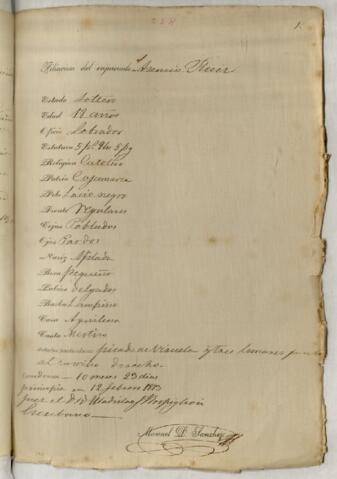 1.
Filiacion del enjuiciado Asencio
Estado Soltero
Edad 18 años
Oficio Labrador
Estatura 5 pg
Religion Catolico
Patria Cajamarca
Pelo Lacio negro
Frente Regular
Cejas Pobladas
Ojos Pardos
Nariz Afilada
Boca pequeña
Labios delgados
Barba Lampiño
Cara Aguileña
Casta Mestiza
picado de Viruela y tres lunares
el carrillo derecho.
Condena 10 meses 29 dias
principia en 12 febrero
Juez el D. D.
Escribano
Manuel D. Sanchez